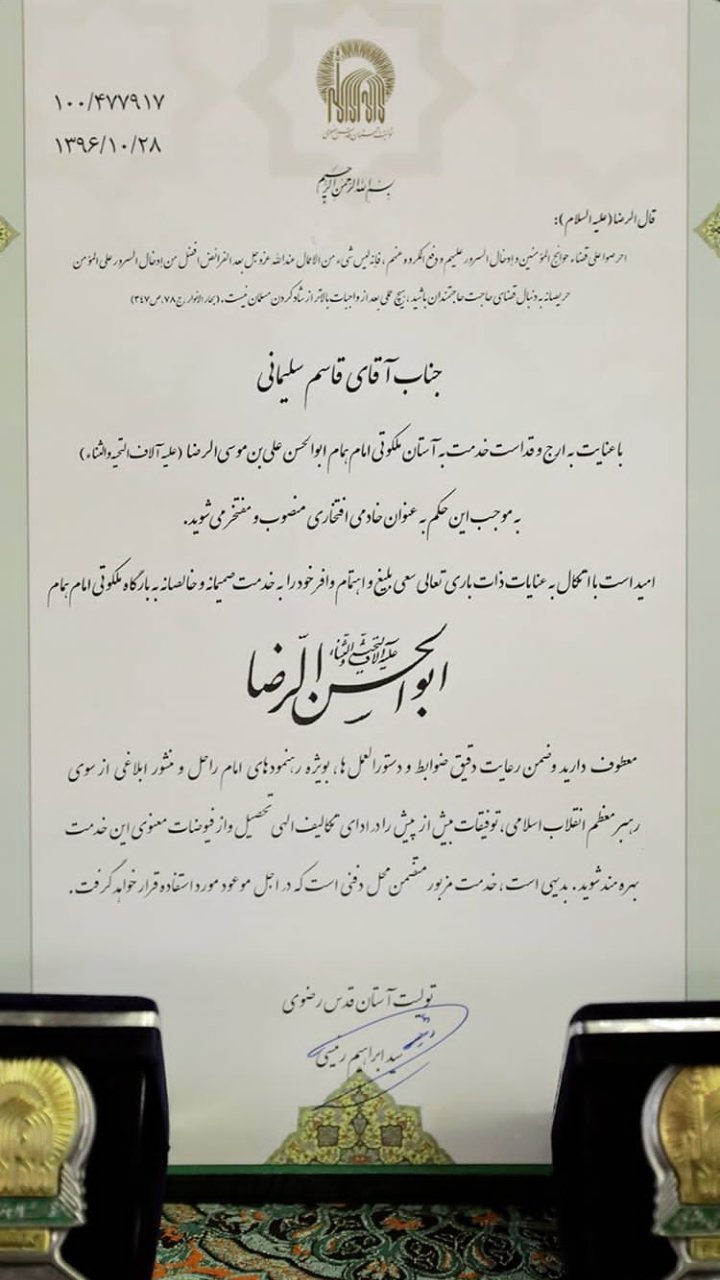 ۱۰۰/۴۷۷۹۱۷
۱۳۹۶/۱۰/۲۸
بسم الله الرحمن الرحیم
قال الرضا (علیه السلام):
احرصوا علی قضاء حوائج المؤمنین و ادخال السرور علیهم و دفع المکروه عنهم، فإنه لیس شیء من الاعمال عند الله عزوجل بعد الفرائض افضل من إدخال السرور علی المؤمن
حریصانه به دنبال قضای حاجت حاجتمندان باشید، هیچ عملی بعد از واجبات بالاتر از شاد کردن مسلمان نیست. (بحار الانوار، ج۷۸، ص ۳۴۷)
جناب آقای قاسم سلیمانی
با عنایت به ارج و قداست خدمت به آستان ملکوتی امام همام ابوالحسن علی بن موسی الرضا (علیه آلاف التحیه والثناء)
به موجب این حکم به عنوان خادمی افتخاری منصوب و مفتخر می شوید.
امید است با اتکال به عنایات ذات باری تعالی سعی بلیغ و اهتمام وافر خود را به خدمت صمیمانه و خالصانه به بارگاه ملکوتی امام همام
ابوالحسن الرّضا علیه آلاف التحیّة والثّناء
معطوف دارید و ضمن رعایت دقیق ضوابط و دستورالعمل ها، بویژه رهنمودهای امام راحل و منشور ابلاغی از سوی
رهبر معظم انقلاب اسلامی، توفیقات بیش از پیش را در ادای تکالیف الهی تحصیل و از فیوضات معنوی این خدمت
بهره مند شوید. بدیهی است، خدمت مزبور متضمن محل دفنی است که در اجل موعود مورد استفاده قرار خواهد گرفت.
تولیت آستان قدس رضوی
سید ابراهیم رئیسی